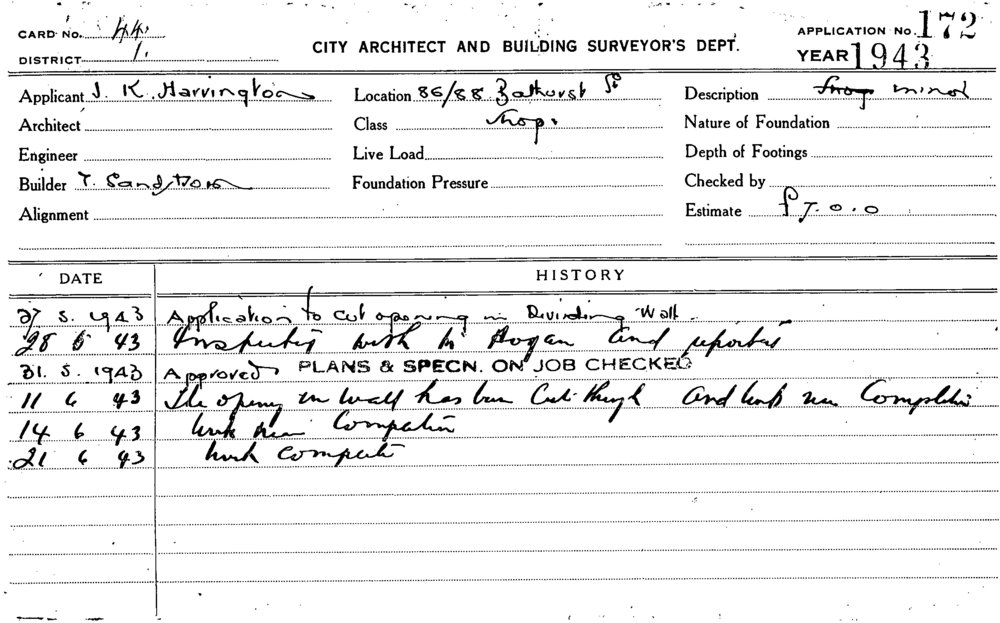 CARD No. 44
DISTRICT 1.
CITY ARCHITECT AND BUILDING SURVEYOR'S DEPT.
APPLICATION No. 172
YEAR 1943
Applicant J. K. Harrington Location 86/88 Bathurst St Description Shop minor
Architect Class Shop. Nature of Foundation
Engineer Live Load Depth of Footings
Builder T. Sandstrom Foundation Pressure Checked by
Alignment Estimate £7.0.0
DATE HISTORY
27 5. 1943 Application to cut opening in Dividing Wall.
28 5 43 Inspected with Mr Hogan and reported
31. 5. 1943 Approved PLANS & SPECN. ON JOB CHECKED
11 6 43 The opening in wall has been Cut through and work near Completion
14 6 43 work near Completion
21 6 43 work complete